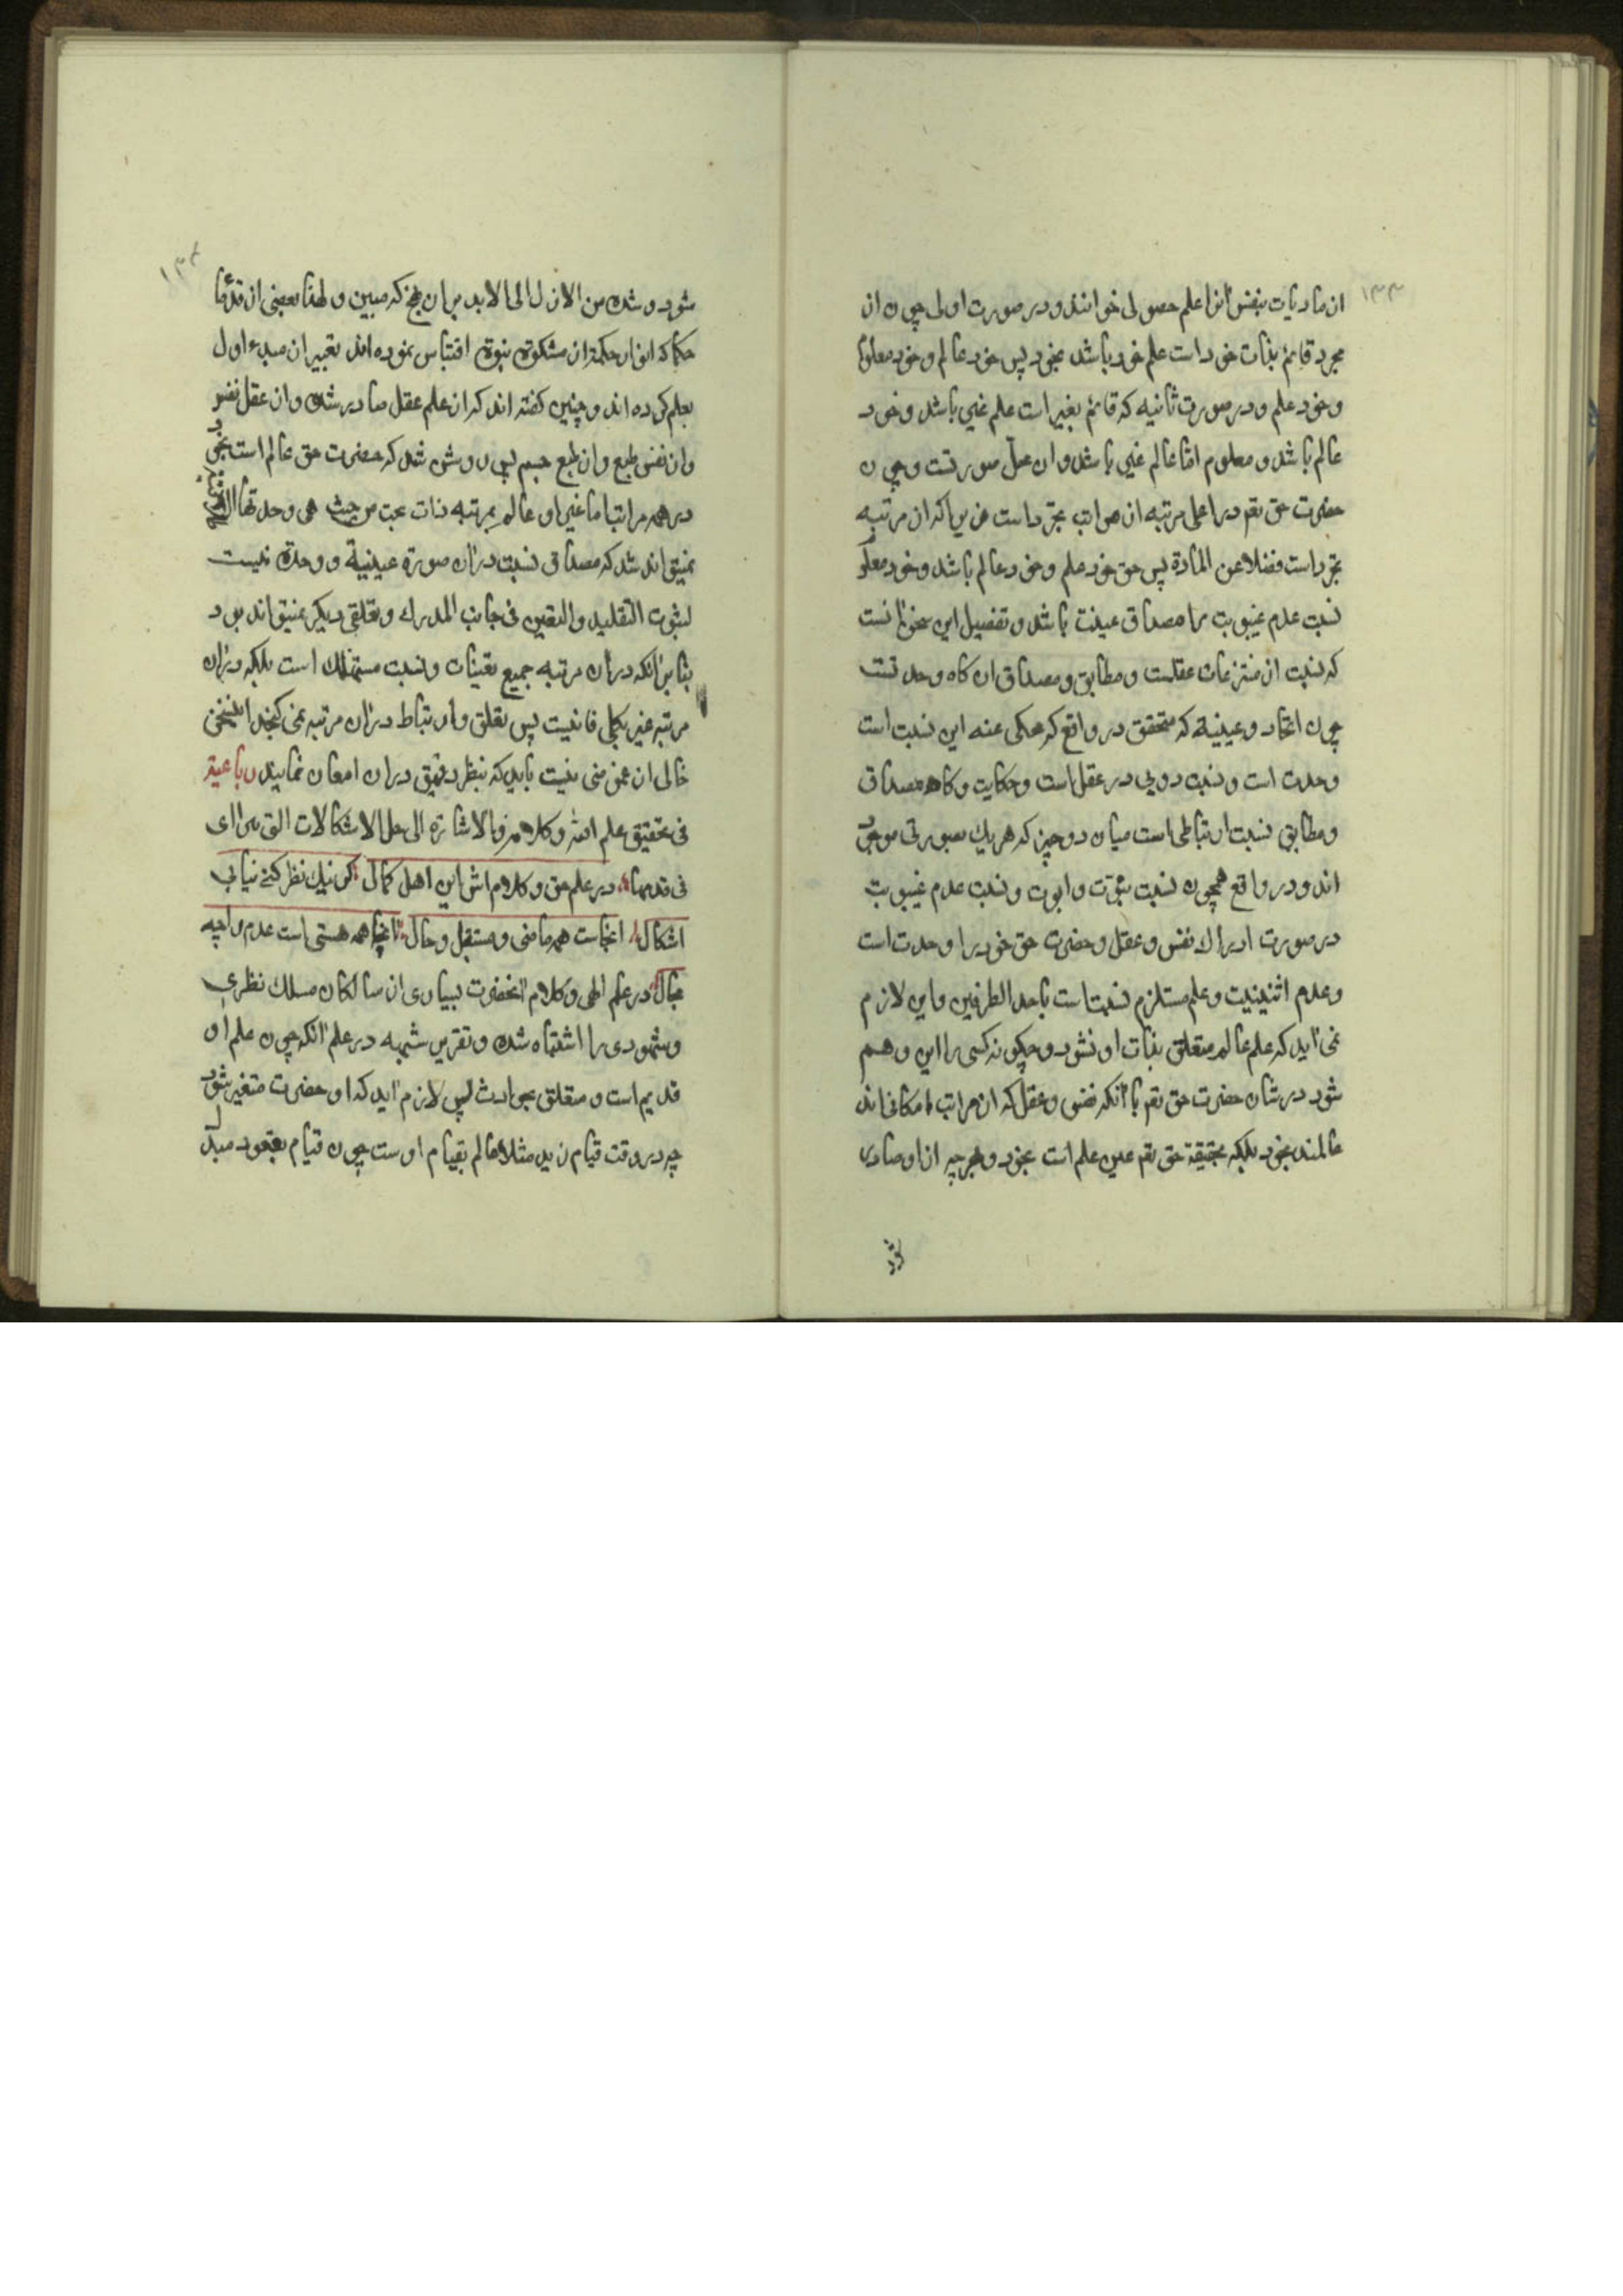 ۱۳۳
از مادیات بنفس انرا علم حصولی خوانند و در صورت اولی چون ان
مجرد قائم بذات خود است علم خود باشد بخود پس خود عالم و خود معلوم
و خود علم و در صورت ثانیه که قائم بغیر است علم غیر باشد و خود
عالم باشد و معلوم اما عالم غیر باشد و ان محل صورتست و چون
حضرت حق تعم در اعلی مرتبه از مراتب تجرد است زیرا که از مرتبه
تجرد است فضلا عن المادة پس حق خود علم و خود عالم باشد و خود معلوم
نسبت عدم غیبوبت را مصداق عینت باشد و تفصیل این سخن انست
که نسبت از منتزعات عقلست و مطابق و مصداق ان کاه وحدتست
چون اتحاد و عینیة که متحقق در واقع که محکی عنه این نسبت است
وحدت است و نسبت دویی در عقل است و حکایت و کاه مصداق
و مطابق نسبت ارتباطی است میان دو چیز که هر یک بصورتی موجود
اند و در واقع همچون نسبت بنوّت و ابوت و نسبت عدم غیبوبت
در صورت ادراک نفس و عقل و حضرت حق خود را وحدت است
و عدم اثنینیت و علم مستلزم نسبتاست باحد الطرفین و این لازم
نمی اید که علم عالم متعلق بذات او نشود و چکونه کسی را این وهم
شود در شان حضرت حق تعم با انکه نفس و عقل که از مراتب امکانی اند
عالمند بخود بلکه بحقیقة حق تعم عین علم است بخود و هرچه از او صادر
شود
۱۳۴
شود و شده من الازل الی الابد بران نهج که مبین و لهذا بعضی از قدمًا
حکما که انوار حکمة از مشکوة نبوة اقتباس نموده اند تعبیر از مبدء اول
بعلم کرده اند و چنین کفته اند که از علم عقل صادر شده و از عقل نفس
و از نفس طبع و از طبع جسم پس روشن شد که حضرت حق عالم است بخود
در همه مراتب اما غیر او عالم بمرتبه ذات بحت من حیث هی وحدتها
نمیتواند شد که مصداق نسبت دران صورة عینیة و وحدة نیست
لثبوت التقلید و التعین فی جانب المدرک و تعلقی دیکر نمیتواند بود
بنابر انکه دران مرتبه جمیع تعینات و نسبت مستهلک است بلکه دران
مرتبه غیر بکلی فانیست پس تعلق و ارتباط دران مرتبه نمی کنجد اینسخن
خالی از غموضی نیست باید که بنظر دقیق دران امعان نمایند رباعیة
فی تحقیق علم الله و کلامه و الاشارة الی حل الاشکالات التی تترااى
فی قدمها در علم حق و کلامش این اهل کمال کر نیک نظر کنے نیابی
اشکال انجاست همه ماضی و مستقبل و حال انجا همه هستی است عدم را چه
مجال در علم الهی و کلام انحضرت بسیاری از سالکان مسلک نظری
و شهودی را اشتباه شده و تقریر شبهه در علم انکه چون علم او
قدیم است و متعلق بحوادث پس لازم اید که او حضرت متغیر شود
چه در وقت قیام زید مثلا عالم بقیام اوست چون قیام بقعود مبدل